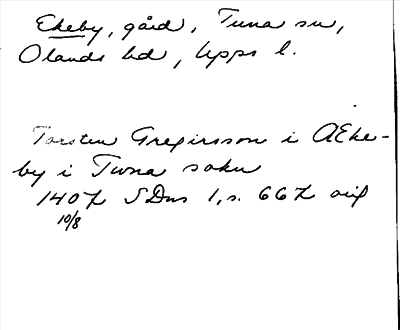 Ekeby, gård, Tuna sn,
Olands hd, Upps l.
Torsten Gregersson i AEke-
by i Tuna sokn
1407 SDns 1, s. 667 orig
10/8